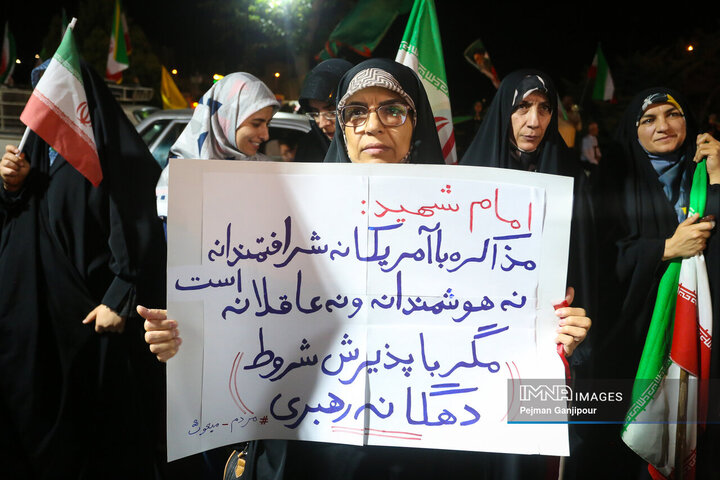 امام شهید:
مذاکره با آمریکا نه شرافتمندانه
نه هوشمندانه و نه عاقلانه است
مگر با پذیرش شروط
دهگانه رهبری)
#مردم_میگویند
IMNA IMAGES
Pejman Ganjipour